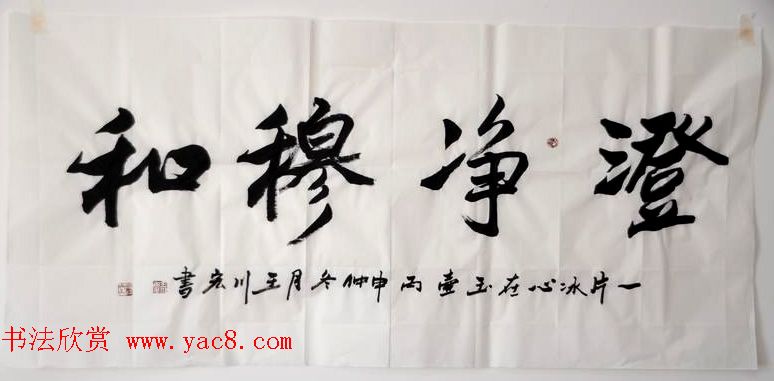 澄净穆和
一片冰心在玉壶丙申仲冬月王川宏書
书法欣赏 www.yac8.com